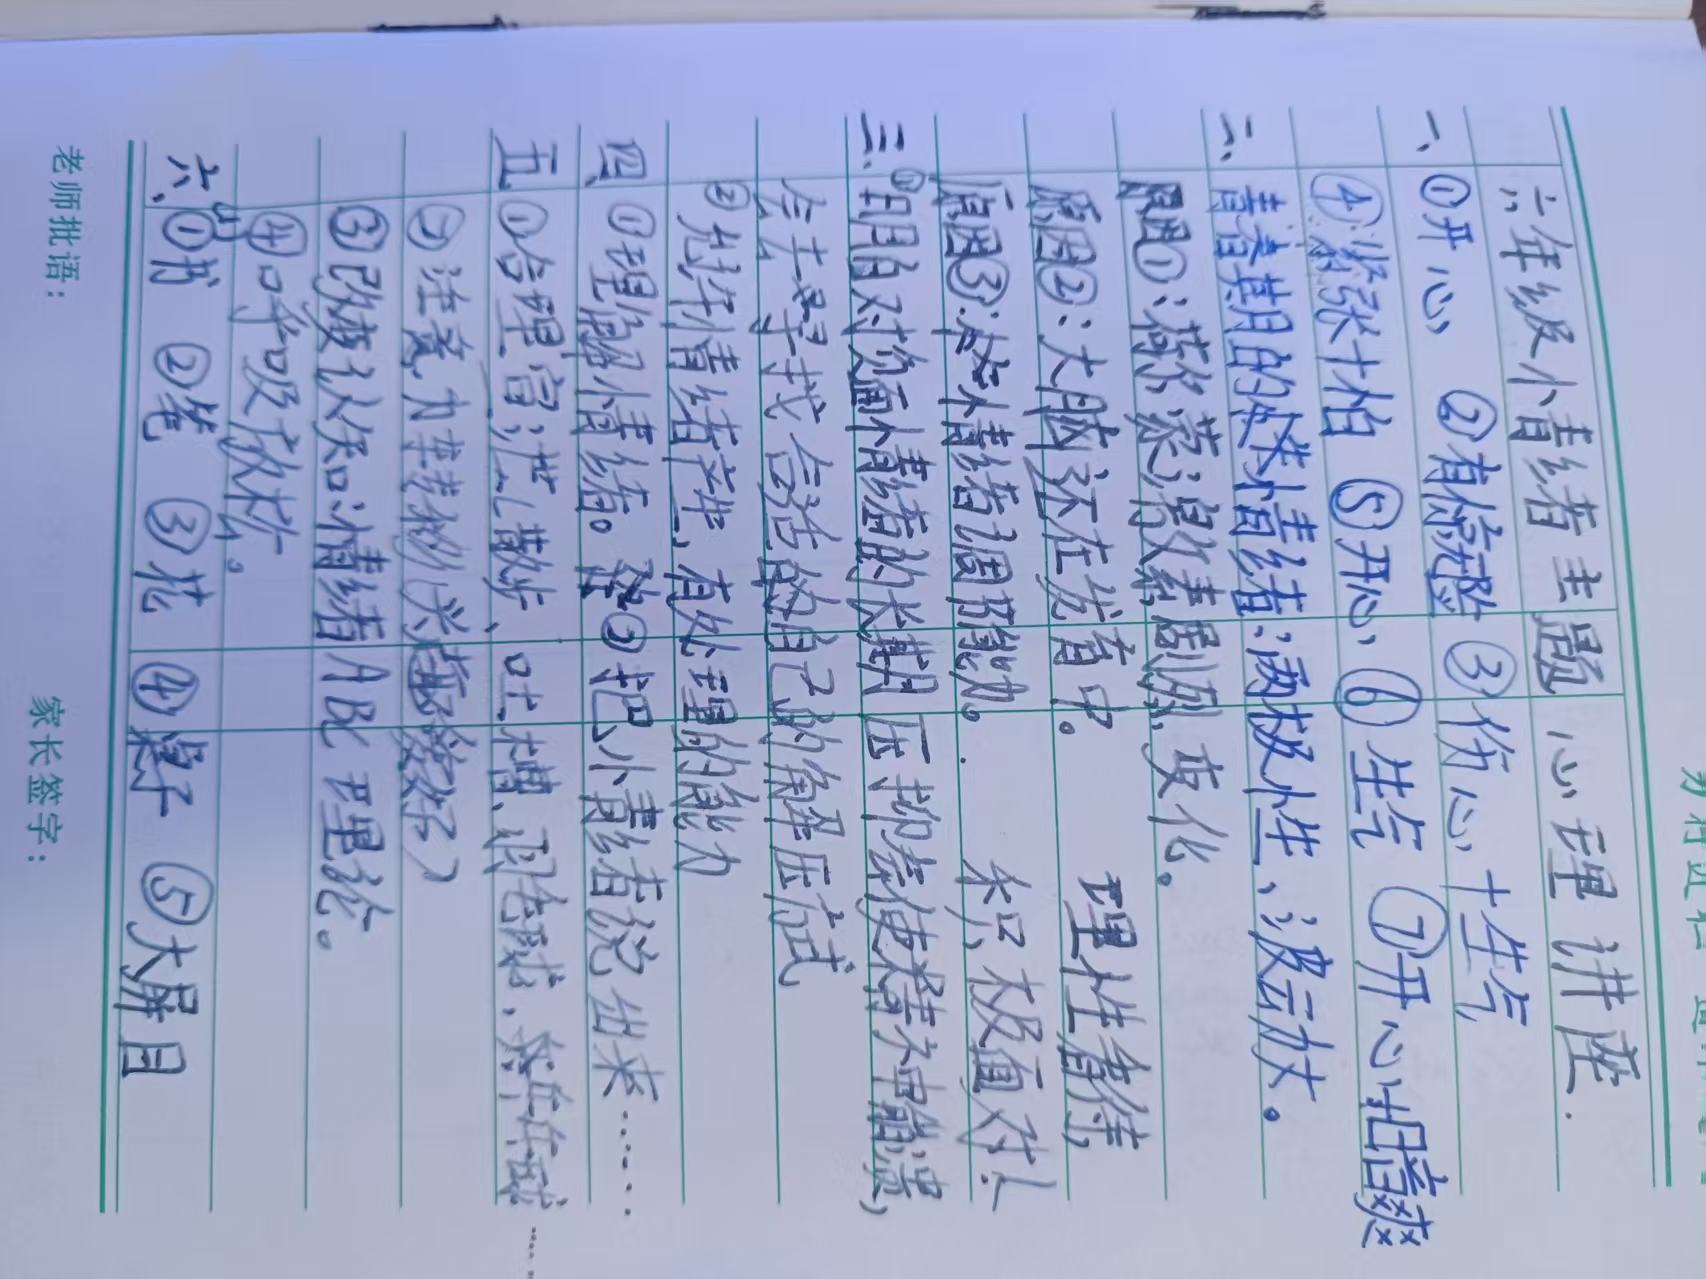 六年级情绪主题心理讲座.
一、①开心 ②有惊 ③伤心+生气
④紧张+怕 ⑤开心 ⑥生气 ⑦开心
二、青春期的情绪:两极性、波动大。
原因①:荷尔蒙激素剧烈变化。
原因②:大脑还在发育中。 理性看待,
原因③:情绪调节能力。 积极面对
三、①明白对负面情绪的长期压抑会使精神崩溃,
会去寻找合适的自己的解压方式
②允许情绪产生,有处理的能力
四、①理解情绪。②把小情绪说出来……
五①合理宣泄(散步、吐槽、羽毛球、乒乓球……
②注意力转移(兴趣爱好)
③改变认知情绪ABC理论。
④呼吸放松。
六、①书 ②笔 ③花 ④桌子 ⑤大屏目
老师批语: 家长签字: